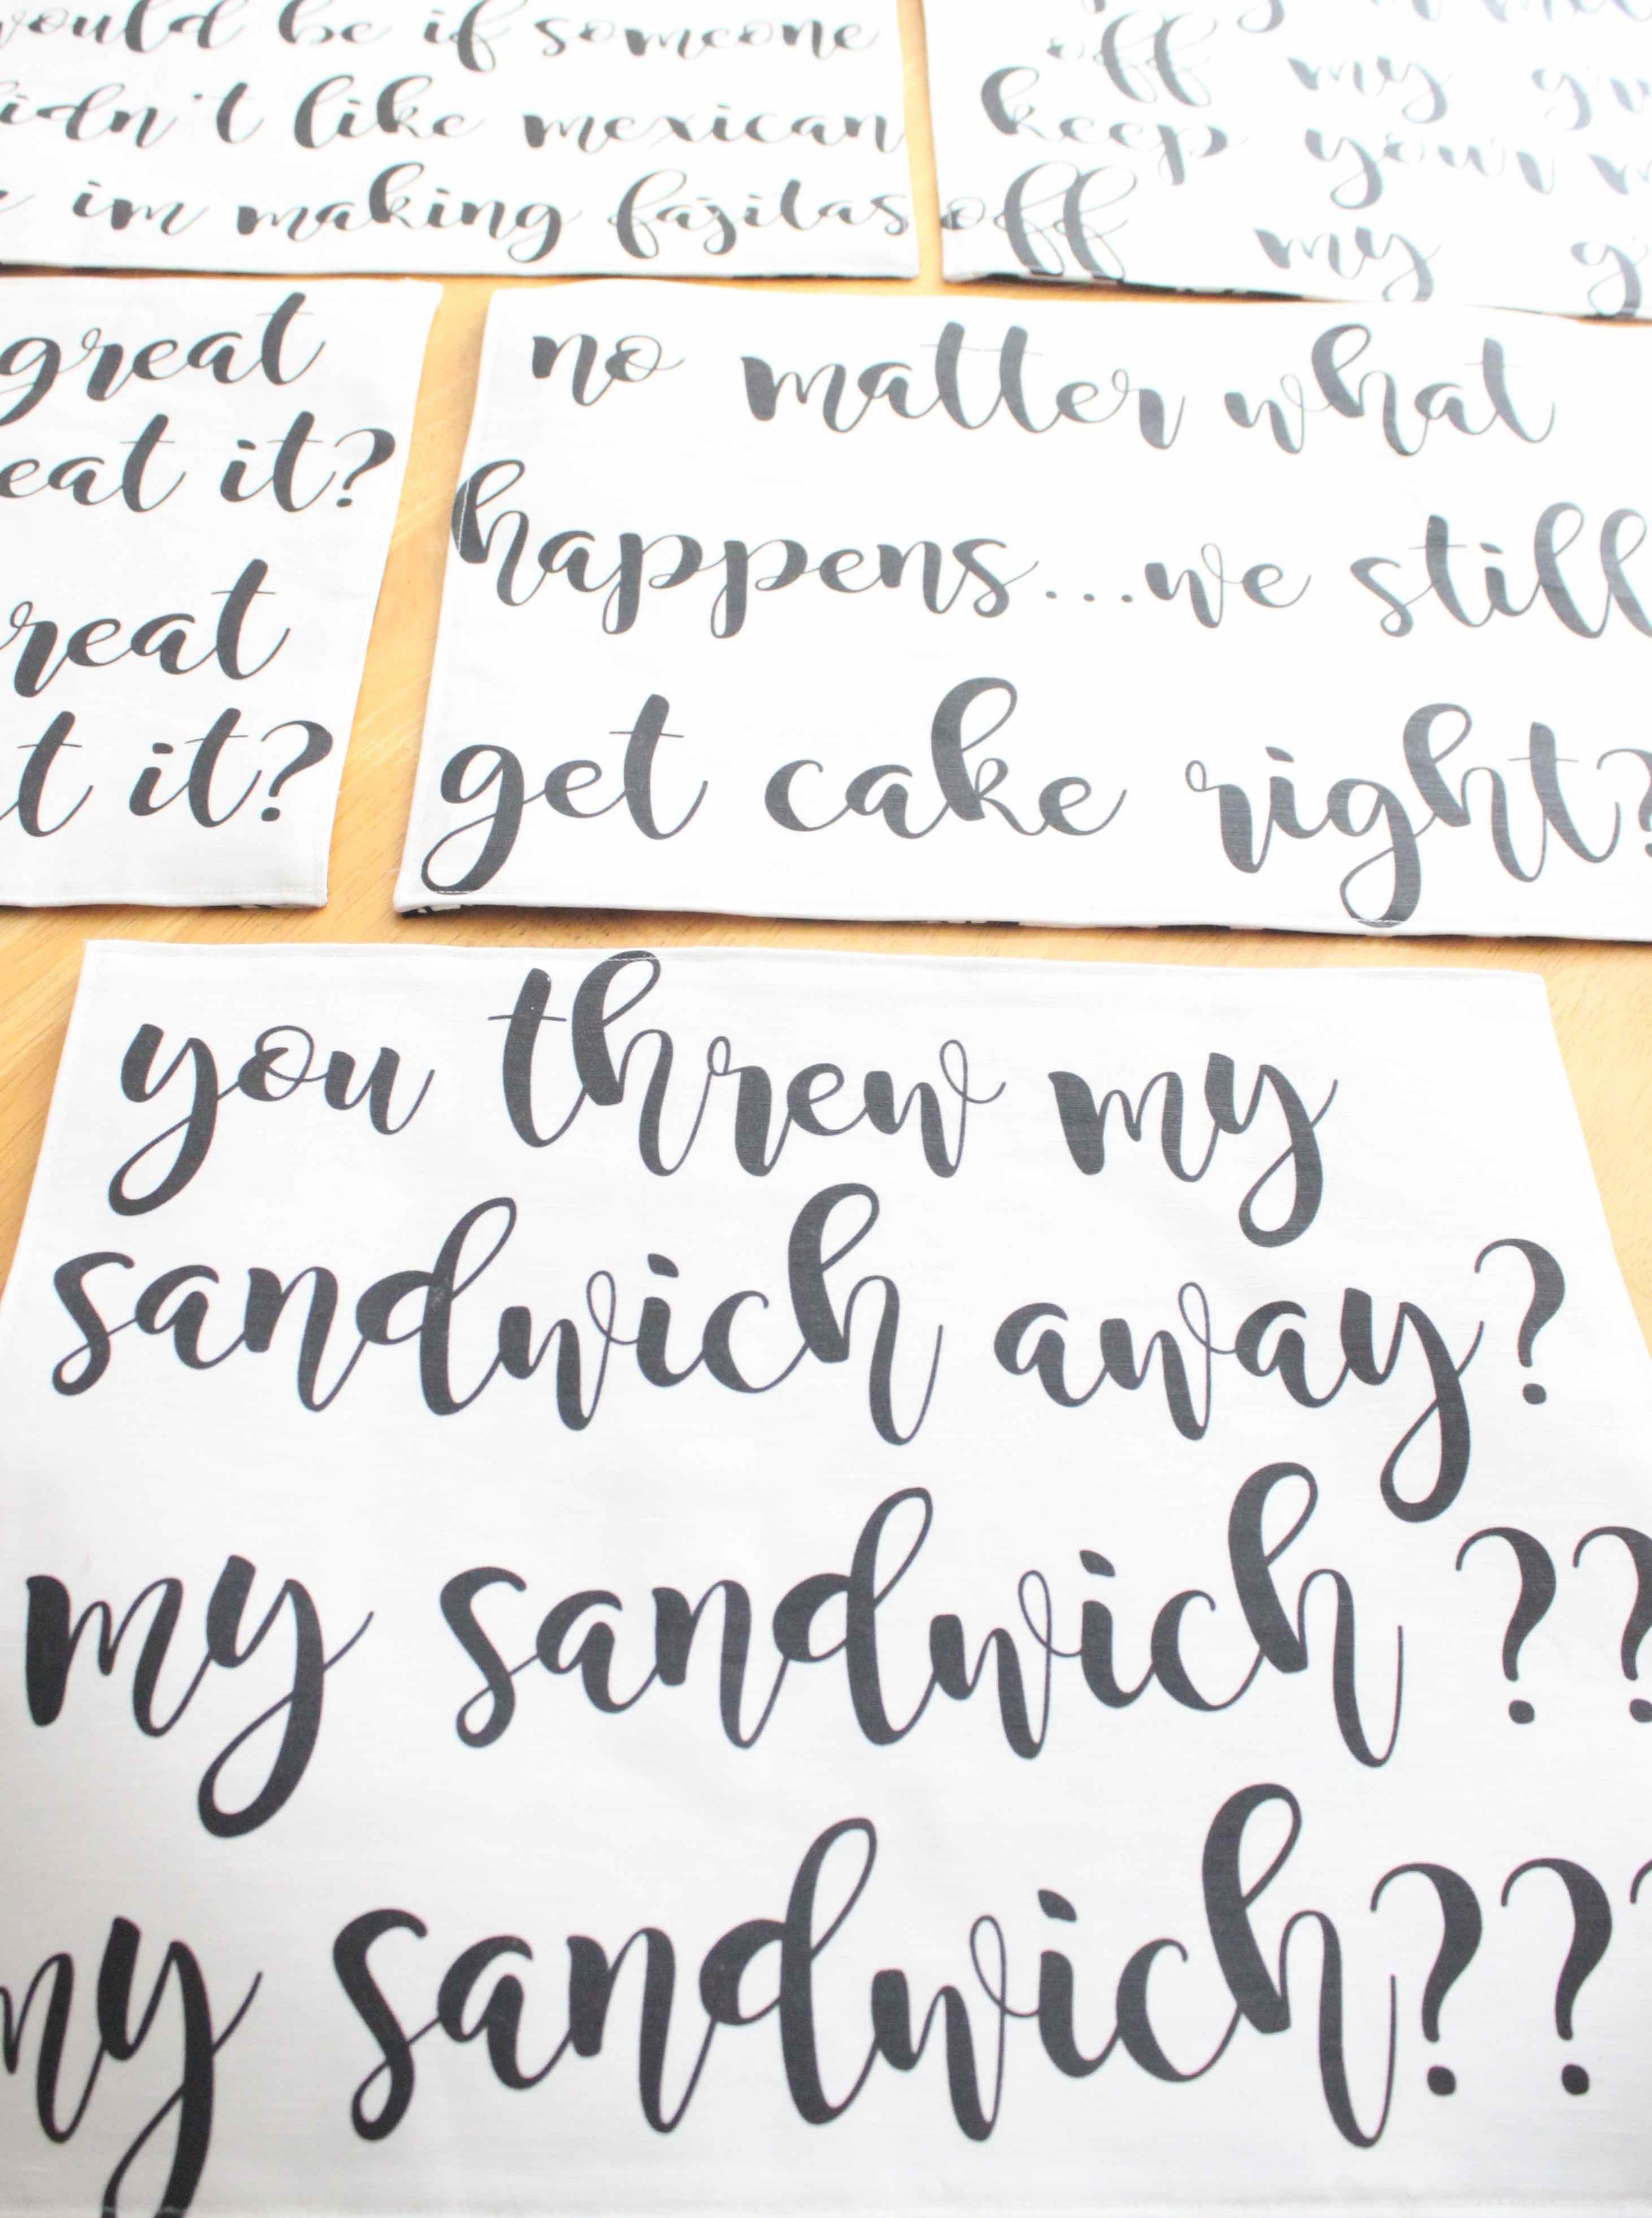 would be if someone
didn't like mexican
im making fajitas
off my
keep your
off my
great
eat it?
great
it?
no matter what
happens...we still
get cake right?
you threw my
sandwich away?
my sandwich ??
my sandwich???